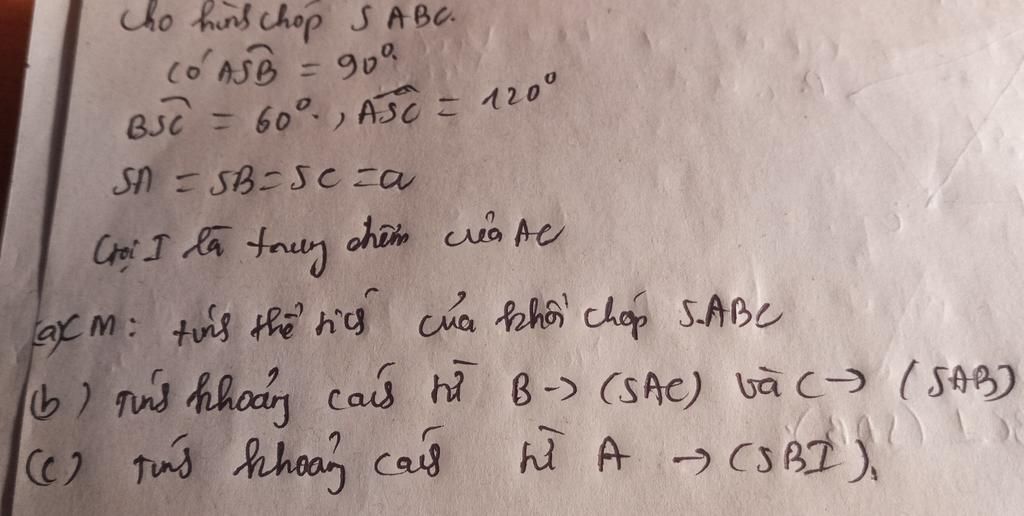 Cho hình chóp SABC.
Có ASB = 90⁰.
BSC = 60⁰., ASC = 120⁰
SA = SB = SC = a
Gọi I là trung điểm của AC
(a) CM: tính thể tích của khối chóp S.ABC
(b) Tính khoảng cách từ B → (SAC) và C → (SAB)
(c) Tính khoảng cách từ A → (SBI).